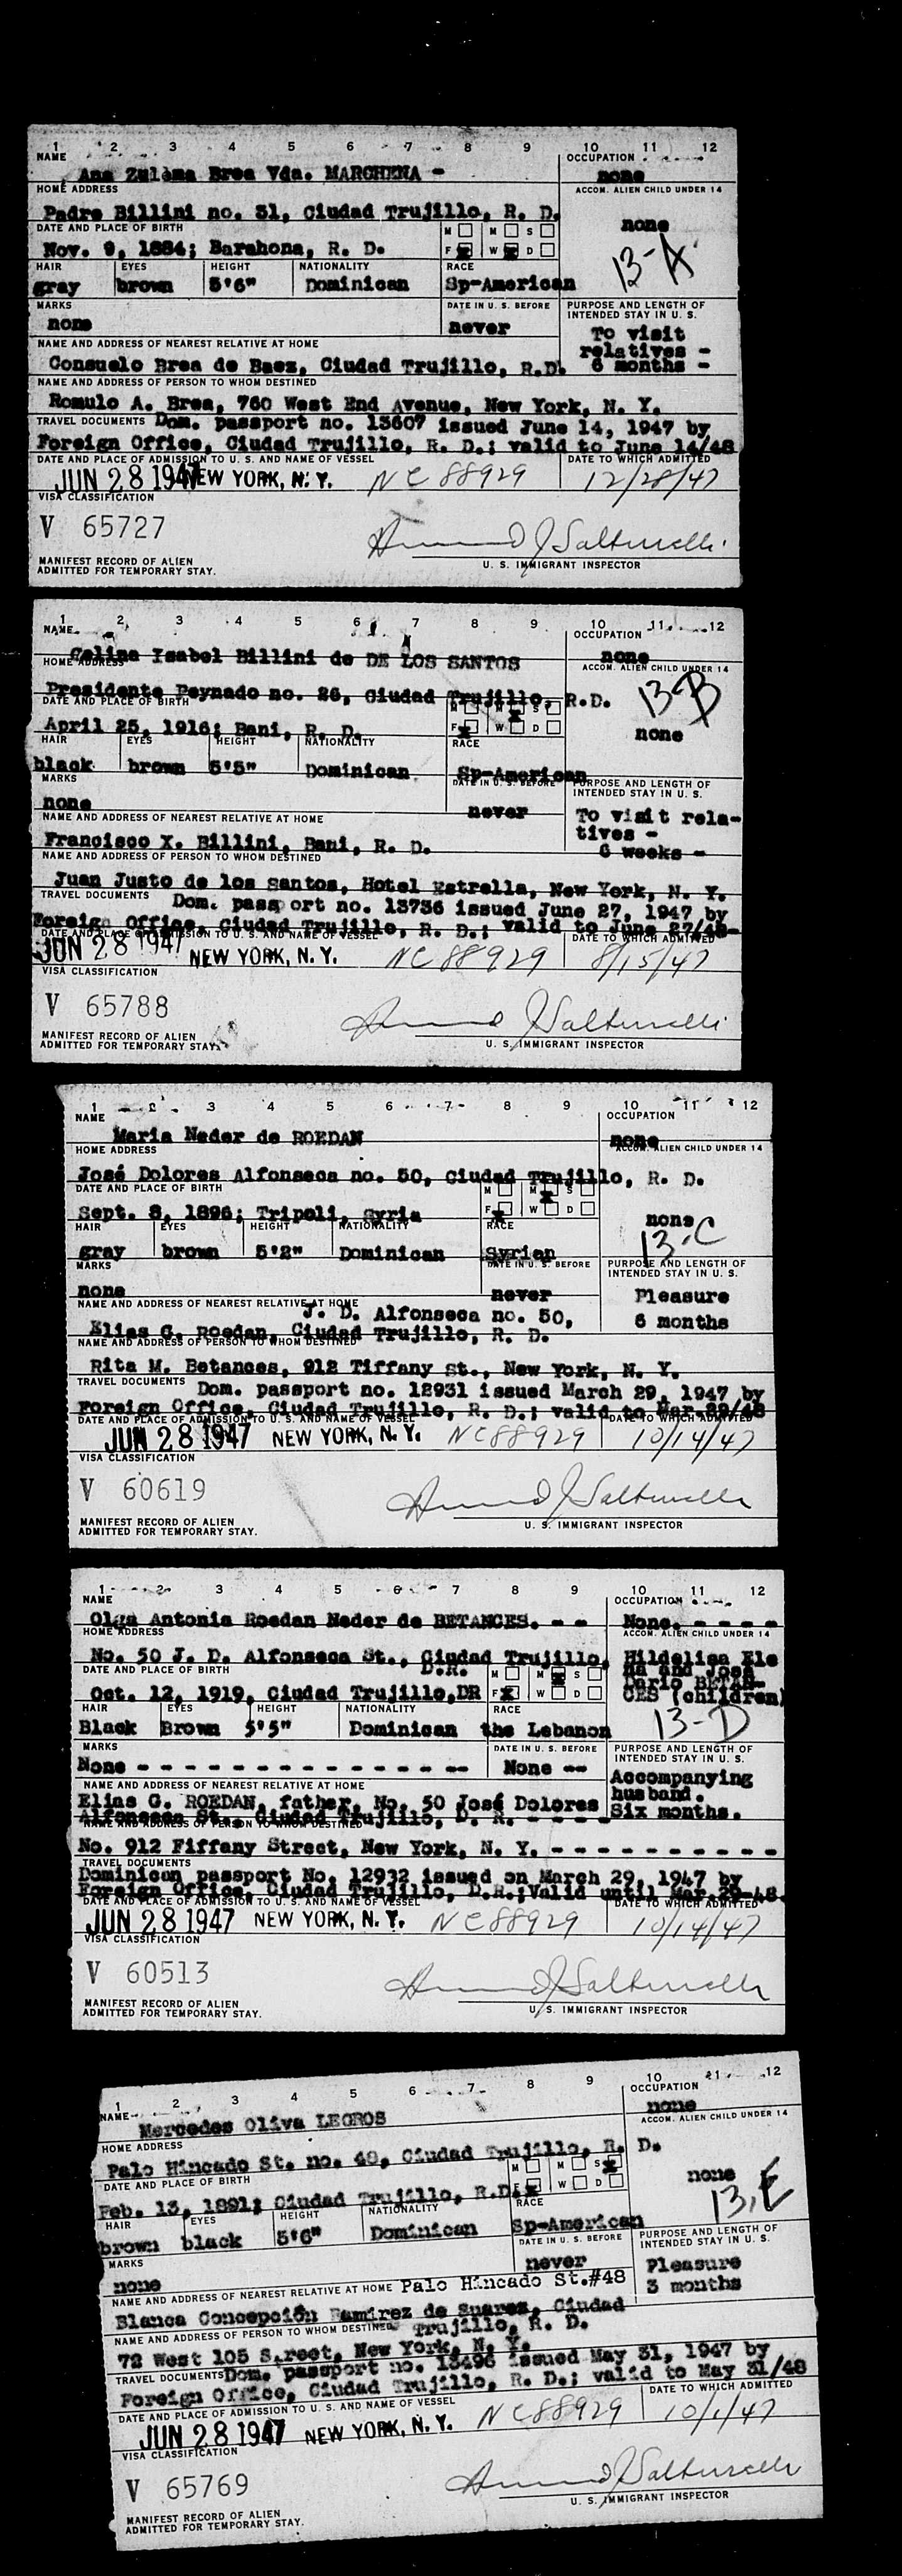 1 2 3 4 5 6 7 8 9 10 11 12
NAME OCCUPATION
Ana Zulema Brea Vda. MARCHENA - none
HOME ADDRESS ACCOM. ALIEN CHILD UNDER 14
Padre Billini no. 31, Ciudad Trujillo, R. D.
DATE AND PLACE OF BIRTH M M S none
Nov. 9, 1884; Barahona, R. D. F W D 13-A
HAIR EYES HEIGHT NATIONALITY RACE
gray brown 5'6" Dominican Sp-American
MARKS DATE IN U. S. BEFORE PURPOSE AND LENGTH OF INTENDED STAY IN U. S.
none never To visit
NAME AND ADDRESS OF NEAREST RELATIVE AT HOME relatives -
Consuelo Brea de Baez, Ciudad Trujillo, R.D. 6 months -
NAME AND ADDRESS OF PERSON TO WHOM DESTINED
Romulo A. Brea, 760 West End Avenue, New York, N. Y.
TRAVEL DOCUMENTS Dom. passport no. 13607 issued June 14, 1947 by
Foreign Office, Ciudad Trujillo, R. D.; valid to June 14/48
DATE AND PLACE OF ADMISSION TO U. S. AND NAME OF VESSEL DATE TO WHICH ADMITTED
JUN 28 1947 NEW YORK, N. Y. NC 88929 12/28/47
VISA CLASSIFICATION
V 65727
MANIFEST RECORD OF ALIEN
ADMITTED FOR TEMPORARY STAY. U. S. IMMIGRANT INSPECTOR
1 2 3 4 5 6 7 8 9 10 11 12
NAME OCCUPATION
Celina Isabel Billini de DE LOS SANTOS none
HOME ADDRESS ACCOM. ALIEN CHILD UNDER 14
Presidente Peynado no. 26, Ciudad Trujillo, R.D. 13-B
DATE AND PLACE OF BIRTH M M S
April 25, 1916; Bani, R. D. F W D none
HAIR EYES HEIGHT NATIONALITY RACE
black brown 5'5" Dominican Sp-American
MARKS DATE IN U. S. BEFORE PURPOSE AND LENGTH OF INTENDED STAY IN U. S.
none never To visit rela-
NAME AND ADDRESS OF NEAREST RELATIVE AT HOME tives -
Francisco X. Billini, Bani, R. D. 6 weeks -
NAME AND ADDRESS OF PERSON TO WHOM DESTINED
Juan Justo de los santos, Hotel Estrella, New York, N. Y.
TRAVEL DOCUMENTS Dom. passport no. 13736 issued June 27, 1947 by
Foreign Office, Ciudad Trujillo, R. D.; valid to June 27/48-
DATE AND PLACE OF ADMISSION TO U. S. AND NAME OF VESSEL DATE TO WHICH ADMITTED
JUN 28 1947 NEW YORK, N. Y. NC 88929 8/15/47
VISA CLASSIFICATION
V 65788
MANIFEST RECORD OF ALIEN
ADMITTED FOR TEMPORARY STAY. U. S. IMMIGRANT INSPECTOR
1 2 3 4 5 6 7 8 9 10 11 12
NAME OCCUPATION
Maria Neder de ROEDAN none
HOME ADDRESS ACCOM. ALIEN CHILD UNDER 14
José Dolores Alfonseca no. 50, Ciudad Trujillo, R. D.
DATE AND PLACE OF BIRTH M M S
Sept. 8, 1896; Tripoli, Syria F W D none
HAIR EYES HEIGHT NATIONALITY RACE 13-C
gray brown 5'2" Dominican Syrian
MARKS DATE IN U. S. BEFORE PURPOSE AND LENGTH OF INTENDED STAY IN U. S.
none never Pleasure
NAME AND ADDRESS OF NEAREST RELATIVE AT HOME J. D. Alfonseca no. 50, 6 months
Elias G. Roedan, Ciudad Trujillo, R. D.
NAME AND ADDRESS OF PERSON TO WHOM DESTINED
Rita M. Betances, 912 Tiffany St., New York, N. Y.
TRAVEL DOCUMENTS Dom. passport no. 12931 issued March 29, 1947 by
Foreign Office, Ciudad Trujillo, R. D.; valid to Mar.29/48
DATE AND PLACE OF ADMISSION TO U. S. AND NAME OF VESSEL DATE TO WHICH ADMITTED
JUN 28 1947 NEW YORK, N. Y. NC 88929 10/14/47
VISA CLASSIFICATION
V 60619
MANIFEST RECORD OF ALIEN
ADMITTED FOR TEMPORARY STAY. U. S. IMMIGRANT INSPECTOR
1 2 3 4 5 6 7 8 9 10 11 12
NAME OCCUPATION
Olga Antonia Roedan Neder de BETANCES. - - None. - - - -
HOME ADDRESS ACCOM. ALIEN CHILD UNDER 14
No. 50 J. D. Alfonseca St., Ciudad Trujillo, D.R. Hildelisa Ele
DATE AND PLACE OF BIRTH M M S na and José Dario BETAN-
Oct. 12, 1919, Ciudad Trujillo,DR F W D CES (children)
HAIR EYES HEIGHT NATIONALITY RACE 13-D
Black Brown 5'5" Dominican the Lebanon
MARKS DATE IN U. S. BEFORE PURPOSE AND LENGTH OF INTENDED STAY IN U. S.
None - - - - - - - - - - - - - - None -- Accompanying
NAME AND ADDRESS OF NEAREST RELATIVE AT HOME husband.
Elias G. ROEDAN, father, No. 50 José Dolores Six months.
Alfonseca St., Ciudad Trujillo, D. R. - - - -
NAME AND ADDRESS OF PERSON TO WHOM DESTINED
No. 912 Fiffany Street, New York, N. Y. - - - - - - - - - -
TRAVEL DOCUMENTS
Dominican passport No. 12932 issued on March 29, 1947 by
Foreign Office, Ciudad Trujillo, D.R.;Valid until Mar.29-48.
DATE AND PLACE OF ADMISSION TO U. S. AND NAME OF VESSEL DATE TO WHICH ADMITTED
JUN 28 1947 NEW YORK, N. Y. NC 88929 10/14/47
VISA CLASSIFICATION
V 60513
MANIFEST RECORD OF ALIEN
ADMITTED FOR TEMPORARY STAY. U. S. IMMIGRANT INSPECTOR
1 2 3 4 5 6 7 8 9 10 11 12
NAME OCCUPATION
Mercedes Oliva LEGROS none
HOME ADDRESS ACCOM. ALIEN CHILD UNDER 14
Palo Hincado St. no. 48, Ciudad Trujillo, R. D.
DATE AND PLACE OF BIRTH M M S none
Feb. 13, 1891; Ciudad Trujillo, R.D. F W D 13-E
HAIR EYES HEIGHT NATIONALITY RACE
brown black 5'6" Dominican Sp-American
MARKS DATE IN U. S. BEFORE PURPOSE AND LENGTH OF INTENDED STAY IN U. S.
none never Pleasure
NAME AND ADDRESS OF NEAREST RELATIVE AT HOME Palo Hincado St.#48 3 months
Blanca Concepción Ramirez de Suarez, Ciudad
NAME AND ADDRESS OF PERSON TO WHOM DESTINED Trujillo, R. D.
72 West 105 Street, New York, N. Y.
TRAVEL DOCUMENTS Dom. passport no. 13496 issued May 31, 1947 by
Foreign Office, Ciudad Trujillo, R. D.; valid to May 31/48
DATE AND PLACE OF ADMISSION TO U. S. AND NAME OF VESSEL DATE TO WHICH ADMITTED
JUN 28 1947 NEW YORK, N. Y. NC 88929 10/1/47
VISA CLASSIFICATION
V 65769
MANIFEST RECORD OF ALIEN
ADMITTED FOR TEMPORARY STAY. U. S. IMMIGRANT INSPECTOR